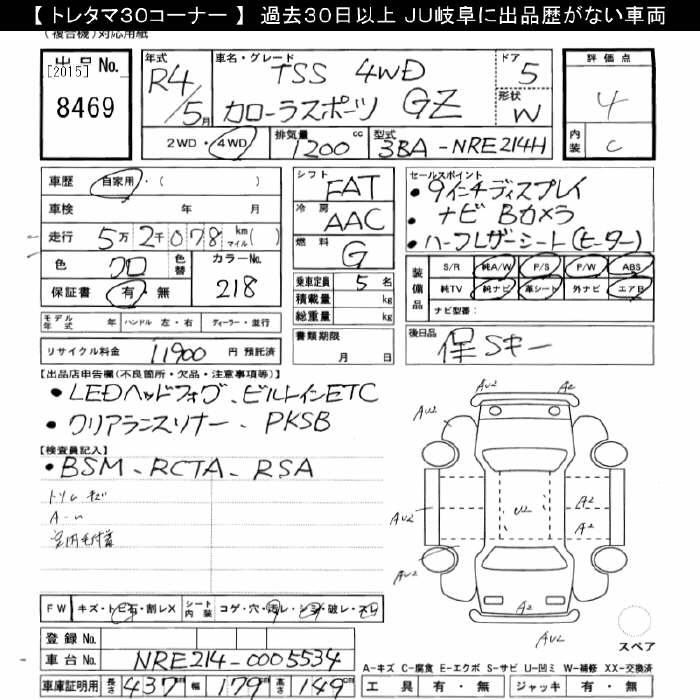 【 トレタマ30コーナー 】 過去30日以上 JU岐阜に出品歴がない車両
(複合機) 対応用紙
出品No.
[2015]
8469
年式
R4/5月
車名・グレード
TSS 4WD
カローラスポーツ GZ
ドア
5
形状
W
評価点
4
内装
C
2WD・4WD
排気量
1200 cc
型式
3BA-NRE214H
車歴 自家用・( )
車検 年 月
走行 5万2千078 km マイル( )
色 クロ 色替 カラーNo. 218
保証書 有・無
モデル年式 年 ハンドル 左・右 ディーラー・並行
リサイクル料金 11900 円 預託済
シフト FAT
冷房 AAC
燃料 G
乗車定員 5 名
積載量 kg
総重量 kg
書類期限
月 日
セールスポイント
・9インチディスプレイ
・ナビ Bカメラ
・ハーフレザーシート(ヒーター)
装備品
S/R 純A/W P/S P/W ABS
純TV 純ナビ 革シート 外ナビ エアB
ナビ型番:
後日品
保 Sキー
【出品店申告欄(不良箇所・欠品・注意事項等)】
・LEDヘッドフォグ、ビルトインETC
・クリアランスソナー、PKSB
【検査員記入】
・BSM、RCTA、RSA
トリムキズ
室内毛付着
AU2
A2
AU2
AU2
U2
A2
A2
AU2
A2
AU2
スペア
FW キズ・トビ石・割レX シート内装 コゲ・穴・汚レ・シミ・破レ・スレ
登録No.
車台No. NRE214-0005534
車庫証明用 長さ 437 幅 179 高さ 149 cm
A-キズ C-腐食 E-エクボ S-サビ U-凹ミ W-補修 XX-交換済
工具 有・無 ジャッキ 有・無